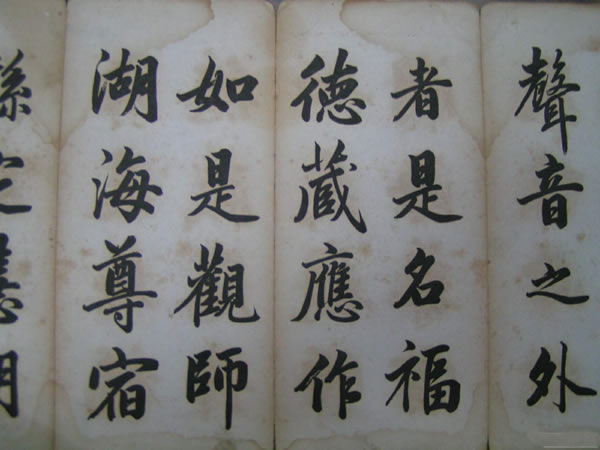 聲音之外
者是名福
徳蔵應作
如是觀師
湖海尊宿